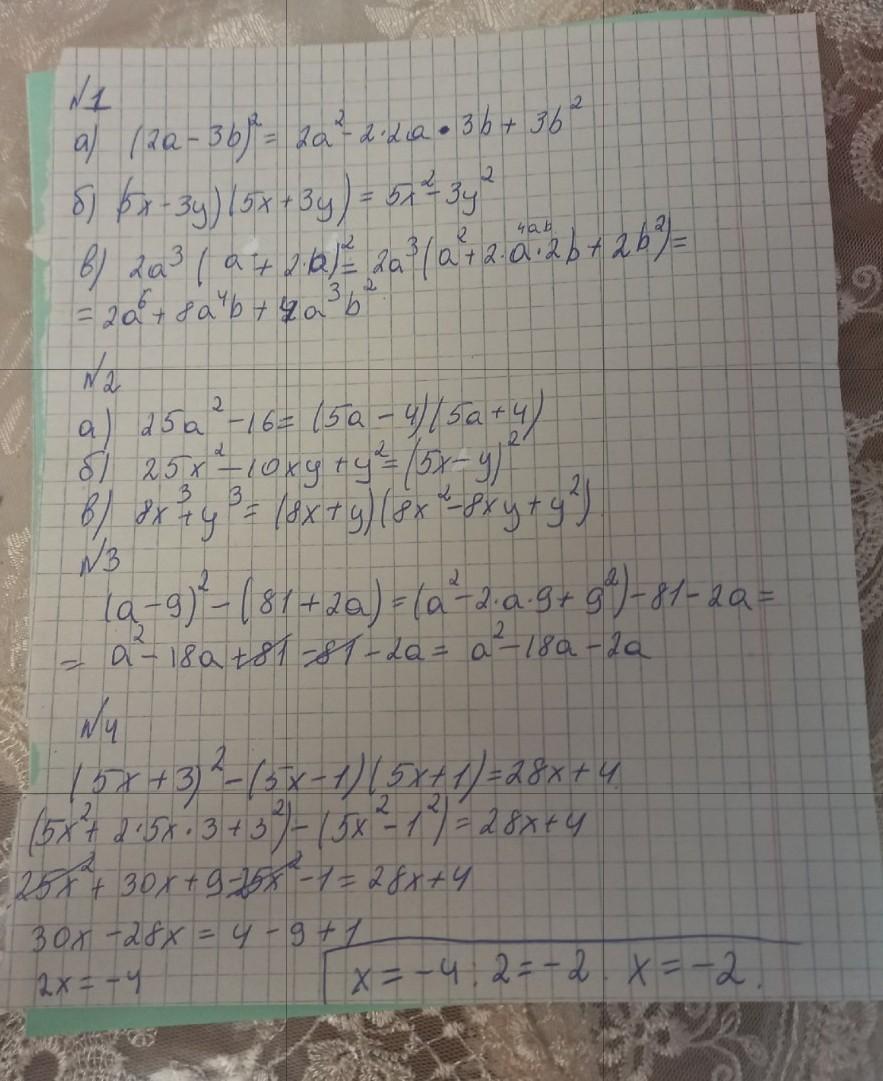 №1
а) (2a - 3b)² = 2a² - 2·2a · 3b + 3b²
б) (5x - 3y)(5x + 3y) = 5x² - 3y²
4ab
в) 2a³ (a + 2·b)² = 2a³ (a² + 2·a·2b + 2b²) =
= 2a⁶ + 8a⁴b + 4a³b²
№2
а) 25a² - 16 = (5a - 4)(5a + 4)
б) 25x² - 10xy + y² = (5x - y)²
в) 8x³ + y³ = (8x + y)(8x² - 8xy + y²)
№3
(a - 9)² - (81 + 2a) = (a² - 2·a·9 + 9²) - 81 - 2a =
= a² - 18a + 81 - 81 - 2a = a² - 18a - 2a
№4
(5x + 3)² - (5x - 1)(5x + 1) = 28x + 4
(5x² + 2·5x·3 + 3²) - (5x² - 1²) = 28x + 4
25x² + 30x + 9 - 25x² - 1 = 28x + 4
30x - 28x = 4 - 9 + 1
2x = -4 x = -4 : 2 = -2. x = -2.